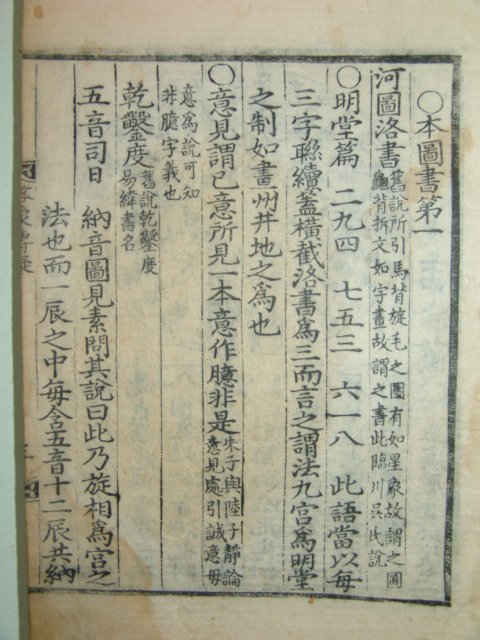 ○本圖書第一
河圖洛書 舊說所引馬背旋毛之圖有如星象故謂之圖
龜背拆文如字畫故謂之書此臨川吳氏說
○明堂篇 二九四 七五三 六一八 此語當以每
三字聯續蓋橫截洛書爲三而言之謂法九宮爲明堂
之制如畫州井地之爲也
○意見謂已意所見一本意作臆非是 朱子與陸子靜論
意見處引誠意毋
意爲說可知
非臆字義也
乾鑿度 舊說乾鑿度
易緯書名
五音司日 納音圖見素問其說曰此乃旋相爲宮之
法也而一辰之中每含五音十二辰共納